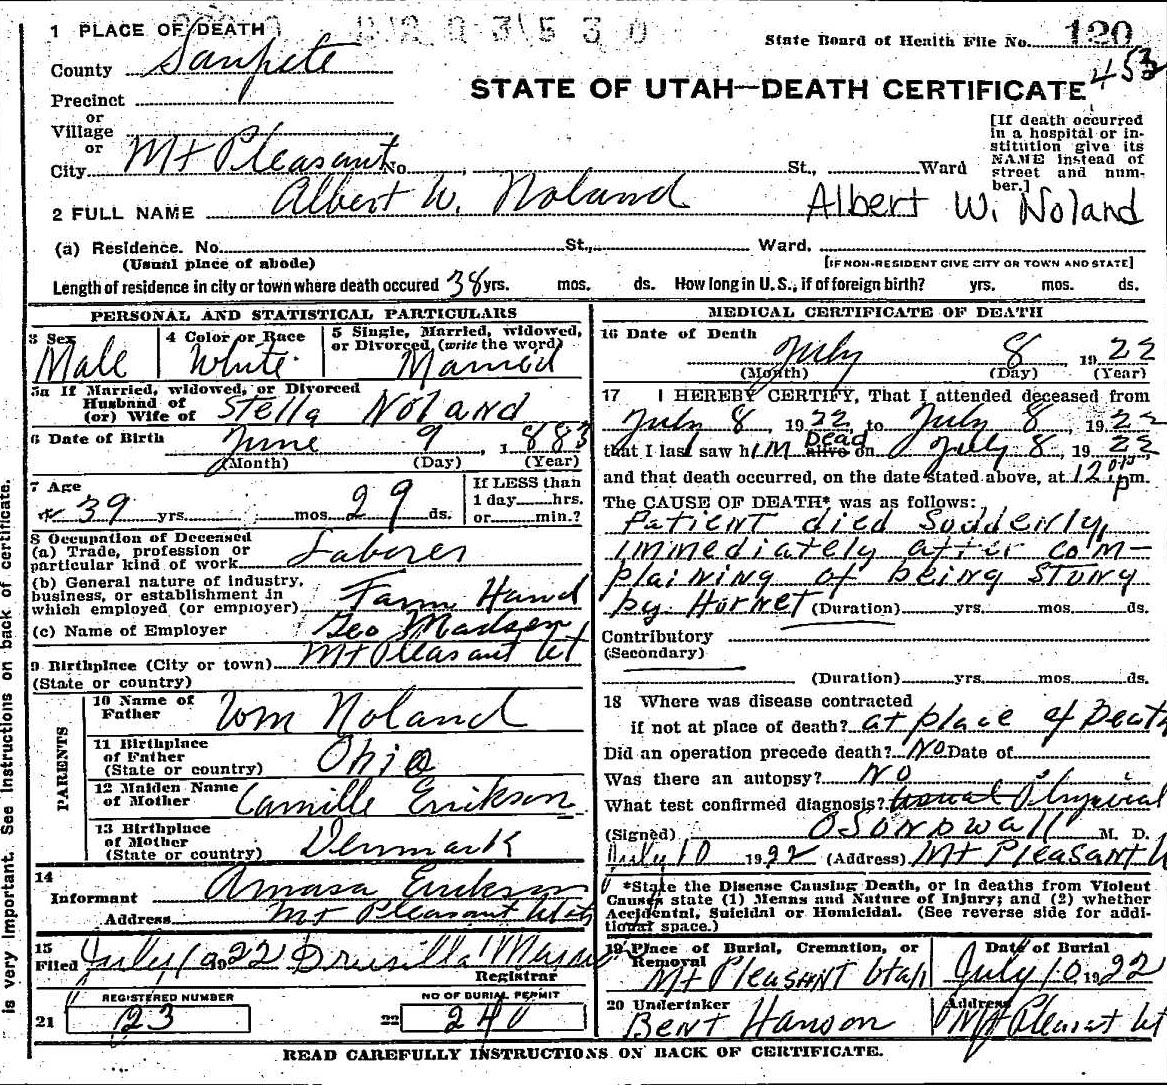 1 PLACE OF DEATH
State Board of Health File No. 120
453
County Sanpete
STATE OF UTAH—DEATH CERTIFICATE
Precinct
or
Village
or
City Mt Pleasant No. St., Ward
[If death occurred
in a hospital or in-
stitution give its
NAME instead of
street and num-
ber.]
2 FULL NAME Albert W. Noland Albert W. Noland
(a) Residence. No. St., Ward.
(Usual place of abode) [IF NON-RESIDENT GIVE CITY OR TOWN AND STATE]
Length of residence in city or town where death occured 38 yrs. mos. ds. How long in U. S., if of foreign birth? yrs. mos. ds.
PERSONAL AND STATISTICAL PARTICULARS
3 Sex 4 Color or Race 5 Single, Married, widowed,
or Divorced, (write the word)
Male White Married
5a If Married, widowed, or Divorced
Husband of
(or) Wife of Stella Noland
6 Date of Birth June 9, 1883
(Month) (Day) (Year)
7 Age If LESS than
39 yrs. mos. 29 ds. 1 day hrs.
or min.?
8 Occupation of Deceased
(a) Trade, profession or
particular kind of work Laborer
(b) General nature of industry,
business, or establishment in
which employed (or employer) Farm Hand
(c) Name of Employer Geo Madsen
9 Birthplace (City or town) Mt Pleasant Ut
(State or country)
PARENTS
10 Name of
Father Wm Noland
11 Birthplace
of Father
(State or country) Ohio
12 Maiden Name
of Mother Camille Erikson
13 Birthplace
of Mother
(State or country) Denmark
14
Informant Amasa Erikson
Address Mt Pleasant Utah
15
Filed July 10 1922 Drusilla
Registrar
REGISTERED NUMBER NO OF BURIAL PERMIT
21 123 22 240
MEDICAL CERTIFICATE OF DEATH
16 Date of Death
July 8, 1922
(Month) (Day) (Year)
17 I HEREBY CERTIFY, That I attended deceased from
July 8, 1922, to July 8, 1922
that I last saw him alive Dead on July 8, 1922
and that death occurred, on the date stated above, at 12 p m.
The CAUSE OF DEATH* was as follows:
Patient died Suddenly,
immediately after com-
plaining of being Stung
by Hornet (Duration) yrs. mos. ds.
Contributory
(Secondary)
(Duration) yrs. mos. ds.
18 Where was disease contracted
if not at place of death? at place of Death
Did an operation precede death? No Date of
Was there an autopsy? No
What test confirmed diagnosis? usual Physical
(Signed) O Sundwall M. D.
July 10 1922 (Address) Mt Pleasant U
*State the Disease Causing Death, or in deaths from Violent
Causes state (1) Means and Nature of Injury; and (2) whether
Accidental, Suicidal or Homicidal. (See reverse side for addi-
tional space.)
19 Place of Burial, Cremation, or Date of Burial
Removal
Mt Pleasant Utah July 10, 1922
20 Undertaker Address
Bent Hanson Mt Pleasant Ut
READ CAREFULLY INSTRUCTIONS ON BACK OF CERTIFICATE.
is very Important. See Instructions on back of certificate.